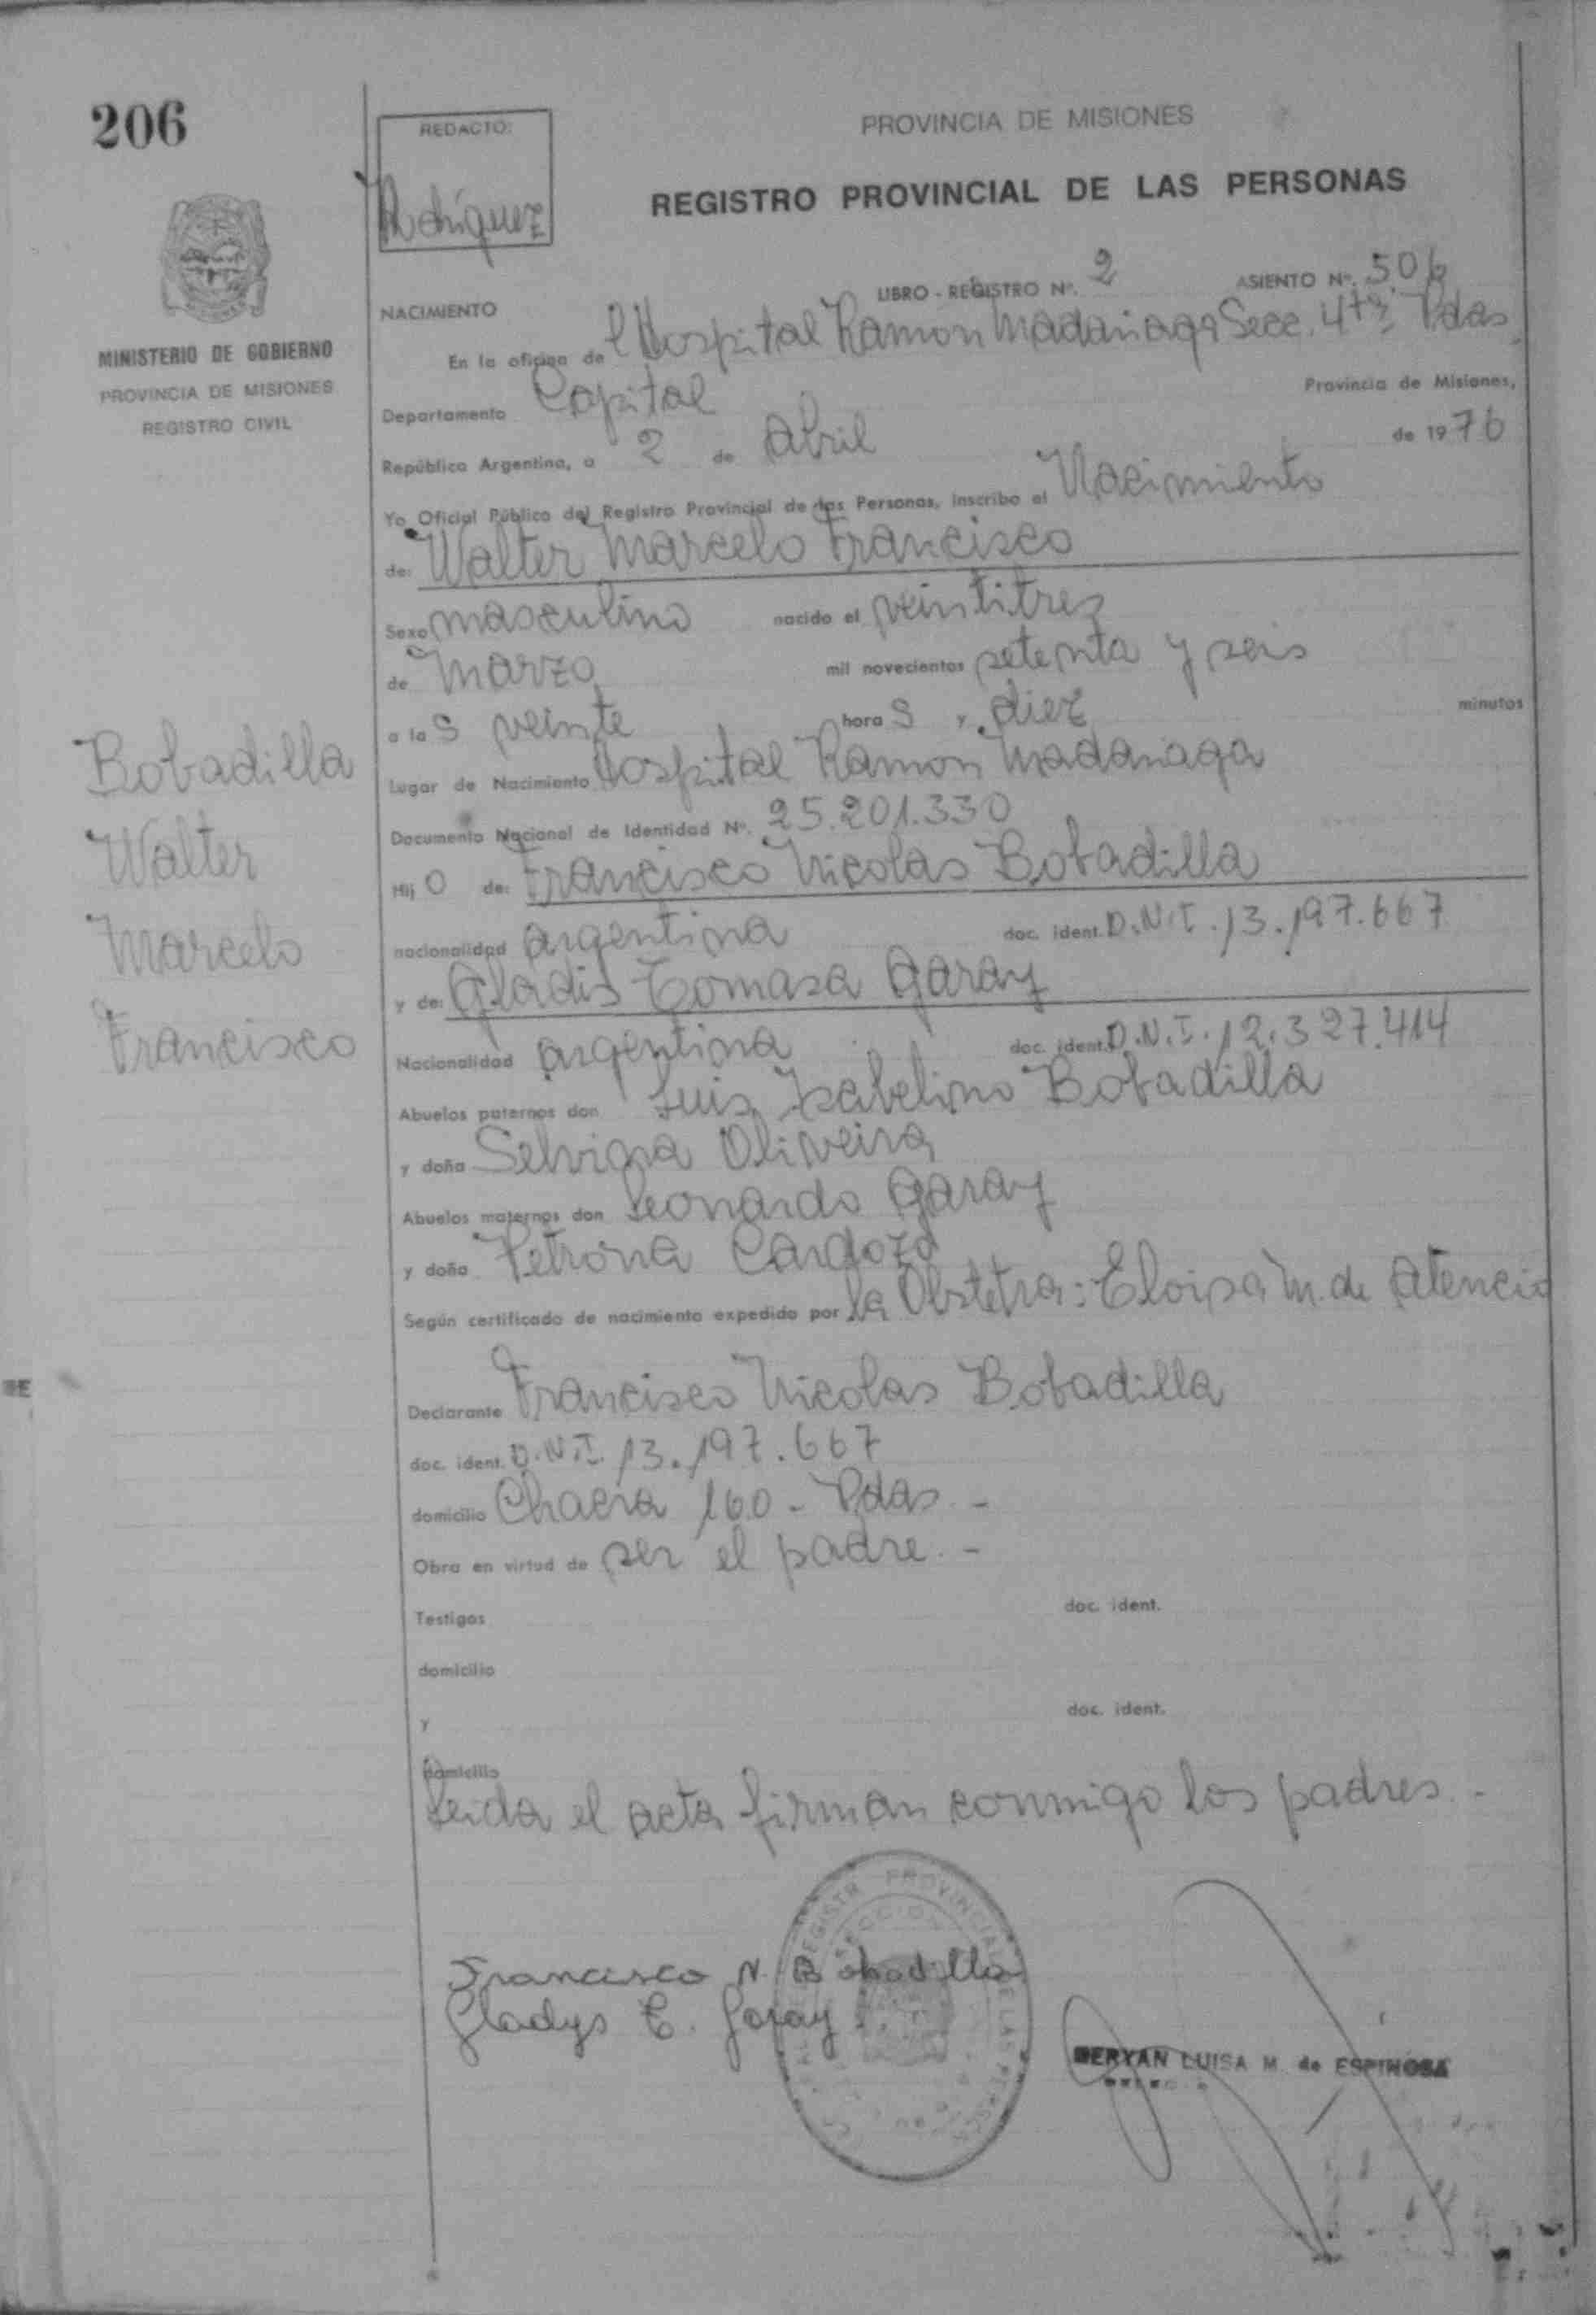 206
REDACTO:
Rodríguez
PROVINCIA DE MISIONES
REGISTRO PROVINCIAL DE LAS PERSONAS
MINISTERIO DE GOBIERNO
PROVINCIA DE MISIONES
REGISTRO CIVIL
LIBRO - REGISTRO Nº. 2 ASIENTO Nº. 506
NACIMIENTO
En la oficina de l Hospital Ramón Madariaga Secc. 4ta; Pdas
Departamento Capital Provincia de Misiones,
República Argentina, a 2 de Abril de 1976
Yo Oficial Público del Registro Provincial de las Personas, inscribo el Nacimiento
de: Walter Marcelo Francisco
Sexo masculino nacido el veintitres
de Marzo mil novecientos setenta y seis
a las veinte horas y diez minutos
Lugar de Nacimiento Hospital Ramon Madariaga
Documento Nacional de Identidad Nº. 25.201.330
Hijo de: Francisco Nicolas Bobadilla
nacionalidad argentina doc. ident. D.N.I. 13.197.667
y de: Gladis Tomasa Garay
Nacionalidad argentina doc. ident. D.N.I. 12.327.414
Abuelos paternos don Luis Isabelino Bobadilla
y doña Selvina Oliveira
Abuelos maternos don Leonardo Garay
y doña Petrona Cardozo
Según certificado de nacimiento expedido por la Obstetra: Eloisa M. de Atencio
Declarante Francisco Nicolas Bobadilla
doc. ident. D.N.I. 13.197.667
domicilio Chacra 160 - Pdas. -
Obra en virtud de ser el padre. -
Testigos doc. ident.
domicilio
y doc. ident.
domicilio
Leida el acta firman conmigo los padres. -
Bobadilla
Walter
Marcelo
Francisco
Francisco N. Bobadilla
Gladys T. Garay
REGISTR PROVINCIAL DE LAS PERSO
LUISA M. de ESPINOSA